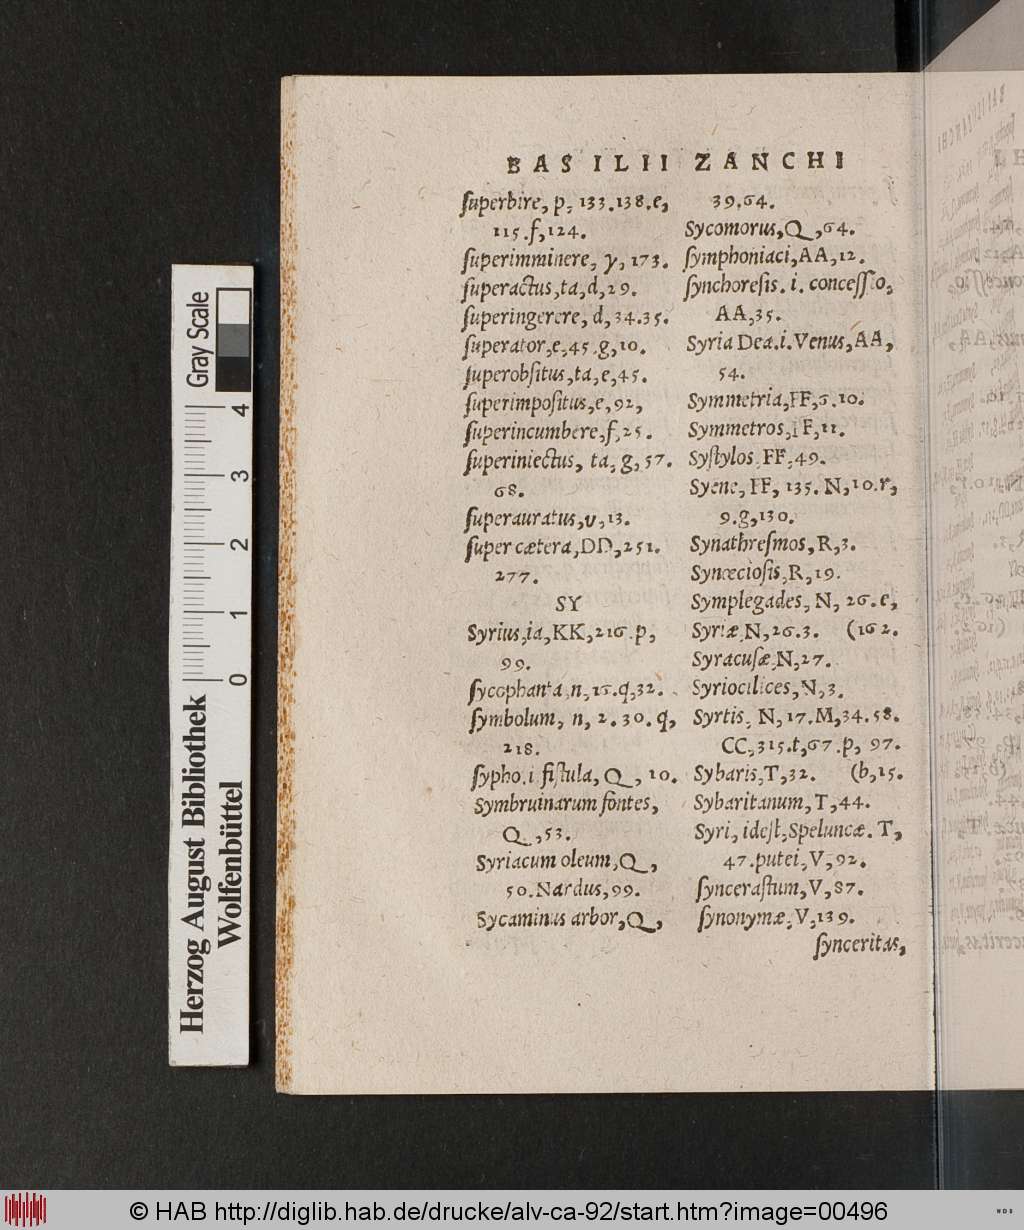 BASILII ZANCHI
ſuperbire, p, 133.138.e,
115.f,124.
ſuperimminere, γ, 173.
ſuperactus,ta,d,29.
ſuperingerere, d,34.35.
ſuperator,e,45.g,10.
ſuperobſitus,ta,e,45.
ſuperimpoſitus,e,92,
ſuperincumbere,f,25.
ſuperiniectus, ta,g,57.
68.
ſuperauratus,υ,13.
ſuper cætera,DD,251.
277.
SY
Syrius,ia,KK,216.p,
99.
ſycophanta,n,16.q,32.
ſymbolum, n, 2.30.q,
218.
ſypho.i.fiſtula, Q, 10.
Symbruinarum fontes,
Q,53.
Syriacum oleum,Q,
50.Nardus,99.
Sycaminus arbor,Q,
39.64.
Sycomorus,Q,64.
ſymphoniaci,AA,12.
ſynchoreſis.i.conceſſio,
AA,35.
Syria Dea.i.Venus,AA,
54.
Symmetria,FF,6.10.
Symmetros,FF,11.
Syſtylos,FF,49.
Syene, FF, 135.N,10.r,
9.g,130.
Synathreſmos,R,3.
Synœcioſis,R,19.
Symplegades, N, 26.e,
Syriæ,N,26.3. (162.
Syracuſæ,N,27.
Syriocilices,N,3.
Syrtis, N,17.M,34.58.
CC,315.t,67.p, 97.
Sybaris,T,32. (b,15.
Sybaritanum,T,44.
Syri, ideſt,Speluncæ.T,
47.putei,V,92.
ſynceraſtum,V,87.
ſynonymæ,V,139.
ſynceritas,
Gray Scale
4
3
2
1
0
Herzog August Bibliothek
Wolfenbüttel
© HAB http://diglib.hab.de/drucke/alv-ca-92/start.htm?image=00496